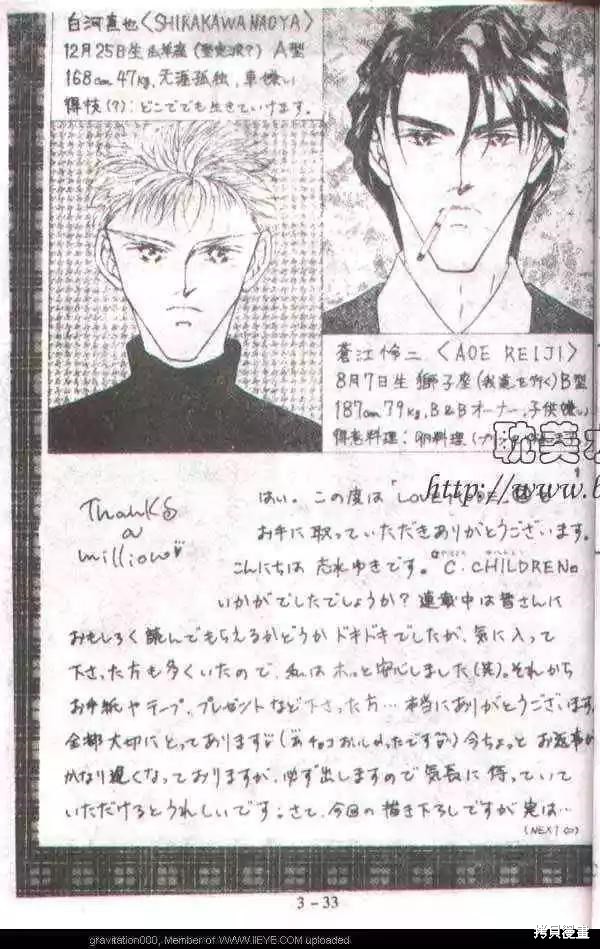 白河直也〈SHIRAKAWA NAOYA〉
12月25日生 山羊座 A型
168cm 47kg、天涯孤独、車嫌い
得技(?):どこででも生きていけます。
蒼江怜二〈AOE REIJI〉
8月7日生 獅子座(我道を行く)B型
187cm 79kg、B&Bオーナー、子供嫌い
得意料理:卵料理
耽美
http://www.
Thanks
a
million
はい。この度は「LOVE
お手に取っていただきありがとうございます。
こんにちは 志水ゆきです。C.CHILDREN
いかがでしたでしょうか?連載中は皆さんに
おもしろく読んでもらえるかどうかドキドキでしたが、気に入って
下さった方も多くいたので、私はホッと安心しました(笑)。それから
お手紙やテープ、プレゼントなど下さった方…本当にありがとうございます
全部大切にとってあります(チョコおいしかったです)今ちょっと お返事が
かなり遅くなっておりますが、必ず出しますので気長に待っていて
いただけるとうれしいです。さて、今回の描き下ろしですが 実は…
(NEXT⇨)
3-33
gravitation000, Member of WWW.IIEYE.COM uploaded
拷貝漫畫